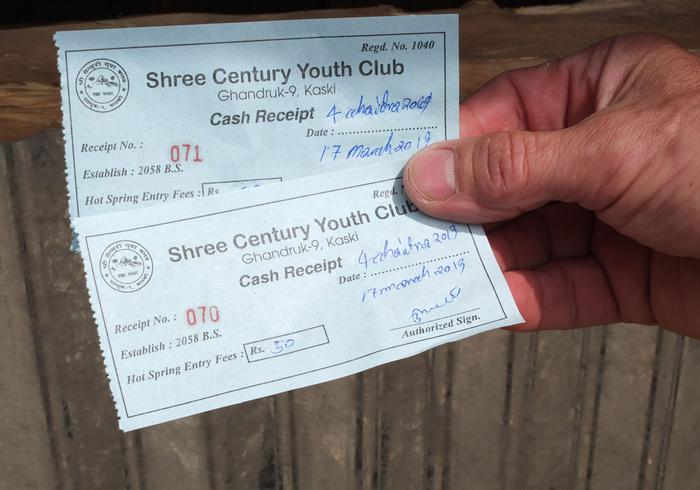 Regd. No. 1040
Shree Century Youth Club
Ghandruk-9, Kaski
Cash Receipt
4 chaitra
Date :
17 march 2013
Receipt No. : 071
Establish : 2058 B.S.
Hot Spring Entry Fees : Rs
Regd.
Shree Century Youth Club
Ghandruk-9, Kaski
Cash Receipt
4 chaitra 2013
Date :
17 march 2013
Receipt No. : 070
Establish : 2058 B.S.
Hot Spring Entry Fees : Rs. 50
Authorized Sign.